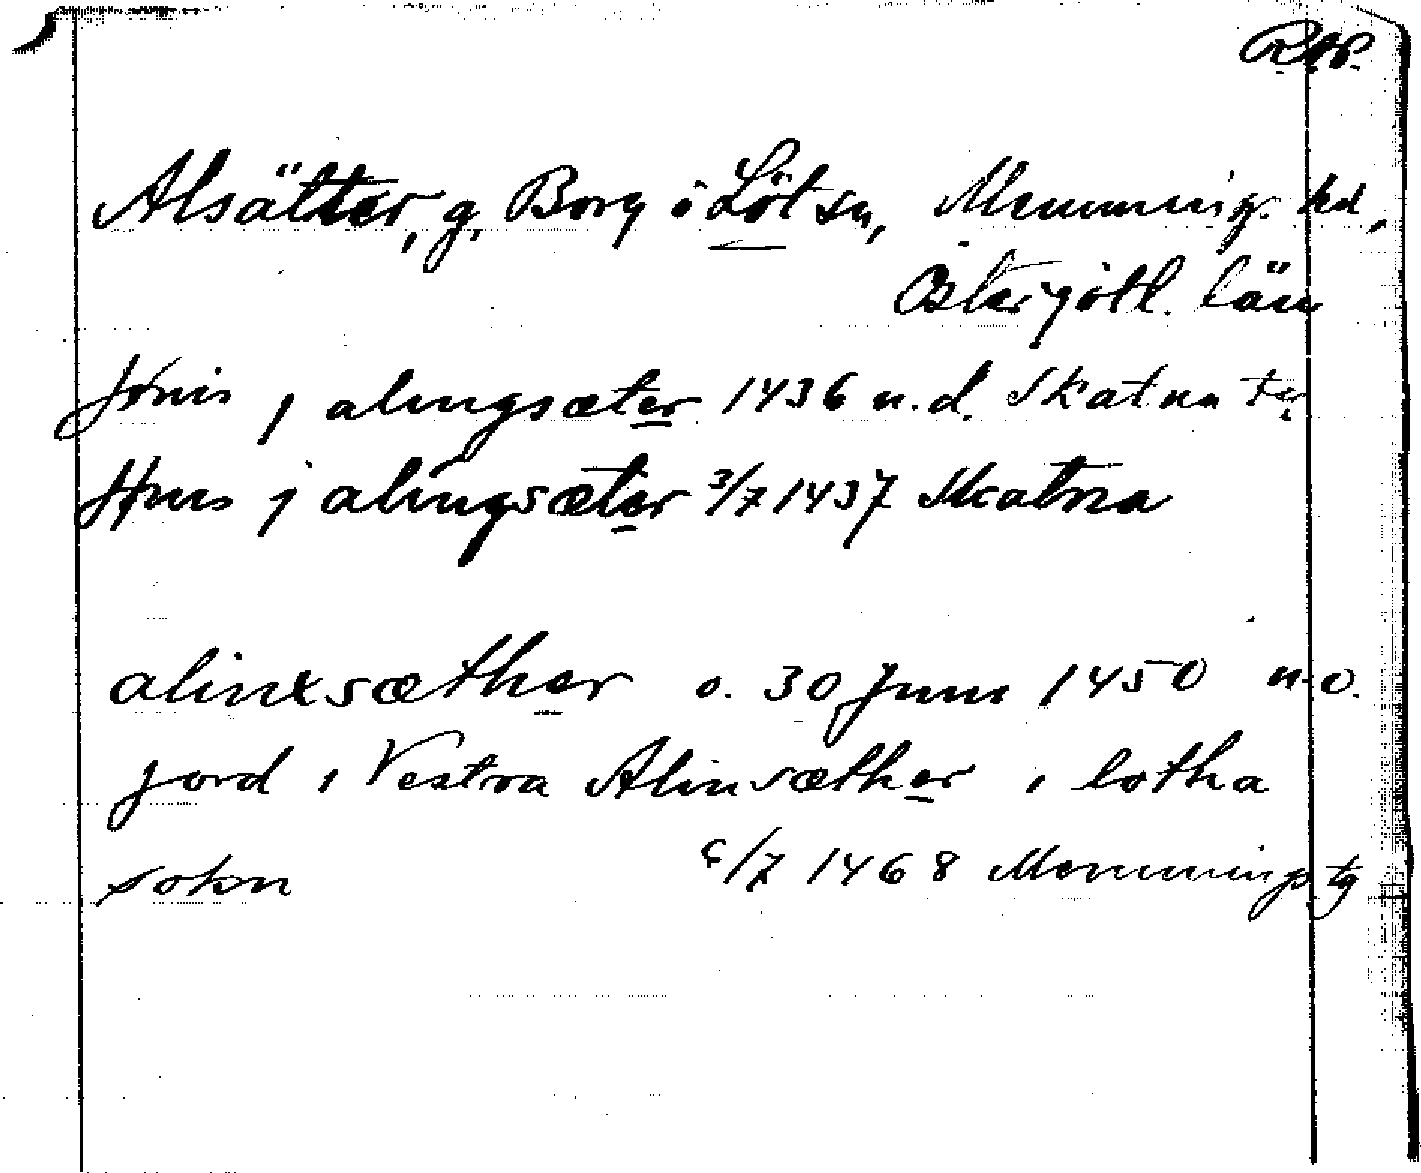 Alsätter, g, Borg o Löt sn, Memmings hd,
Östergötl. län
Jönis j alingsæter 1436 u.d. Skatna
Hnis j alingsæter 3/7 1437 Skatna
alinxsæther o. 30 Juni 1450 u.o.
jord i Vestra Alinsæther i lotha
sokn 6/7 1468 Memmings tg